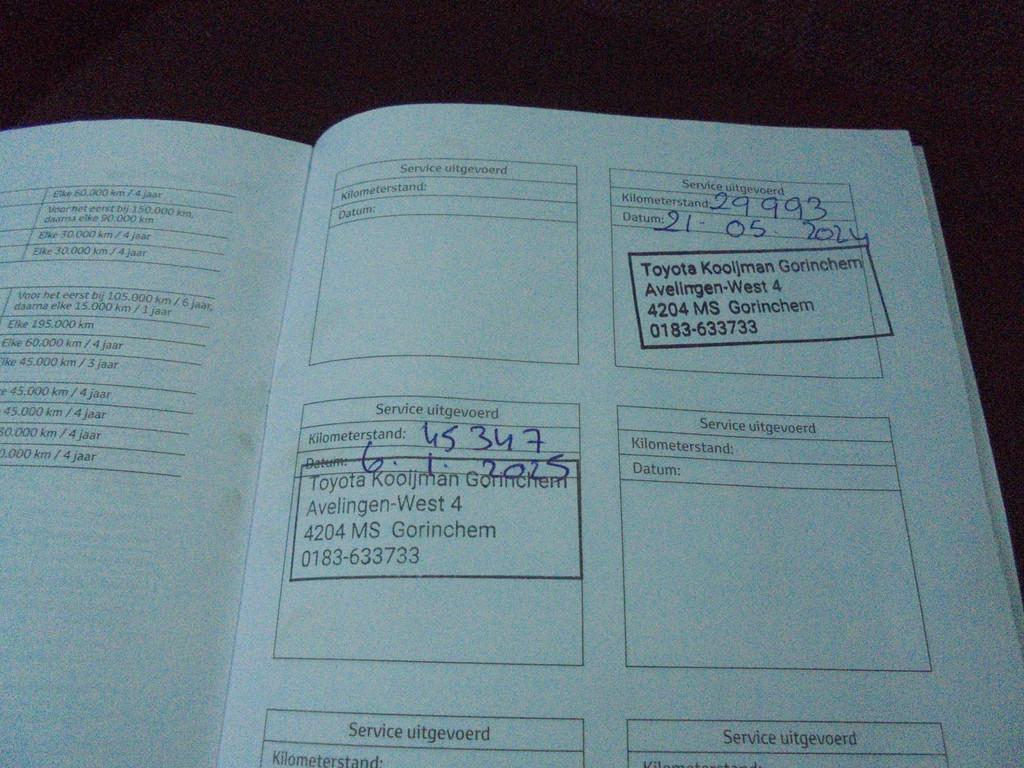 Elke 60.000 km / 4 jaar
Voor het eerst bij 150.000 km,
daarna elke 90.000 km
Elke 30.000 km / 4 jaar
Elke 30.000 km / 4 jaar
Voor het eerst bij 105.000 km / 6 jaar,
daarna elke 15.000 km / 1 jaar
Elke 195.000 km
Elke 60.000 km / 4 jaar
lke 45.000 km / 3 jaar
e 45.000 km / 4 jaar
45.000 km / 4 jaar
0.000 km / 4 jaar
0.000 km / 4 jaar
Service uitgevoerd
Kilometerstand:
Datum:
Service uitgevoerd
Kilometerstand: 29 993
Datum: 21 - 05. 2024
Toyota Kooijman Gorinchem
Avelingen-West 4
4204 MS Gorinchem
0183-633733
Service uitgevoerd
Kilometerstand: 45 347
Datum: 6. 1. 2025
Toyota Kooijman Gorinchem
Avelingen-West 4
4204 MS Gorinchem
0183-633733
Service uitgevoerd
Kilometerstand:
Datum:
Service uitgevoerd
Kilometerstand:
Service uitgevoerd
Kilometerstand: